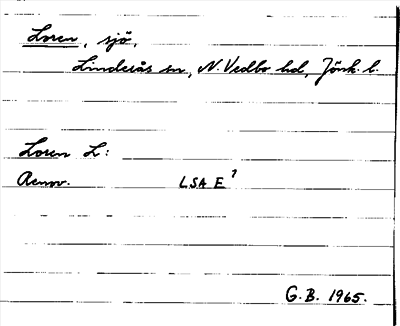 Loren, sjö,
Linderås sn, N. Vedbo hd, Jönk. l.
Loren L:
Renov. LSA E⁷
G.B. 1965.